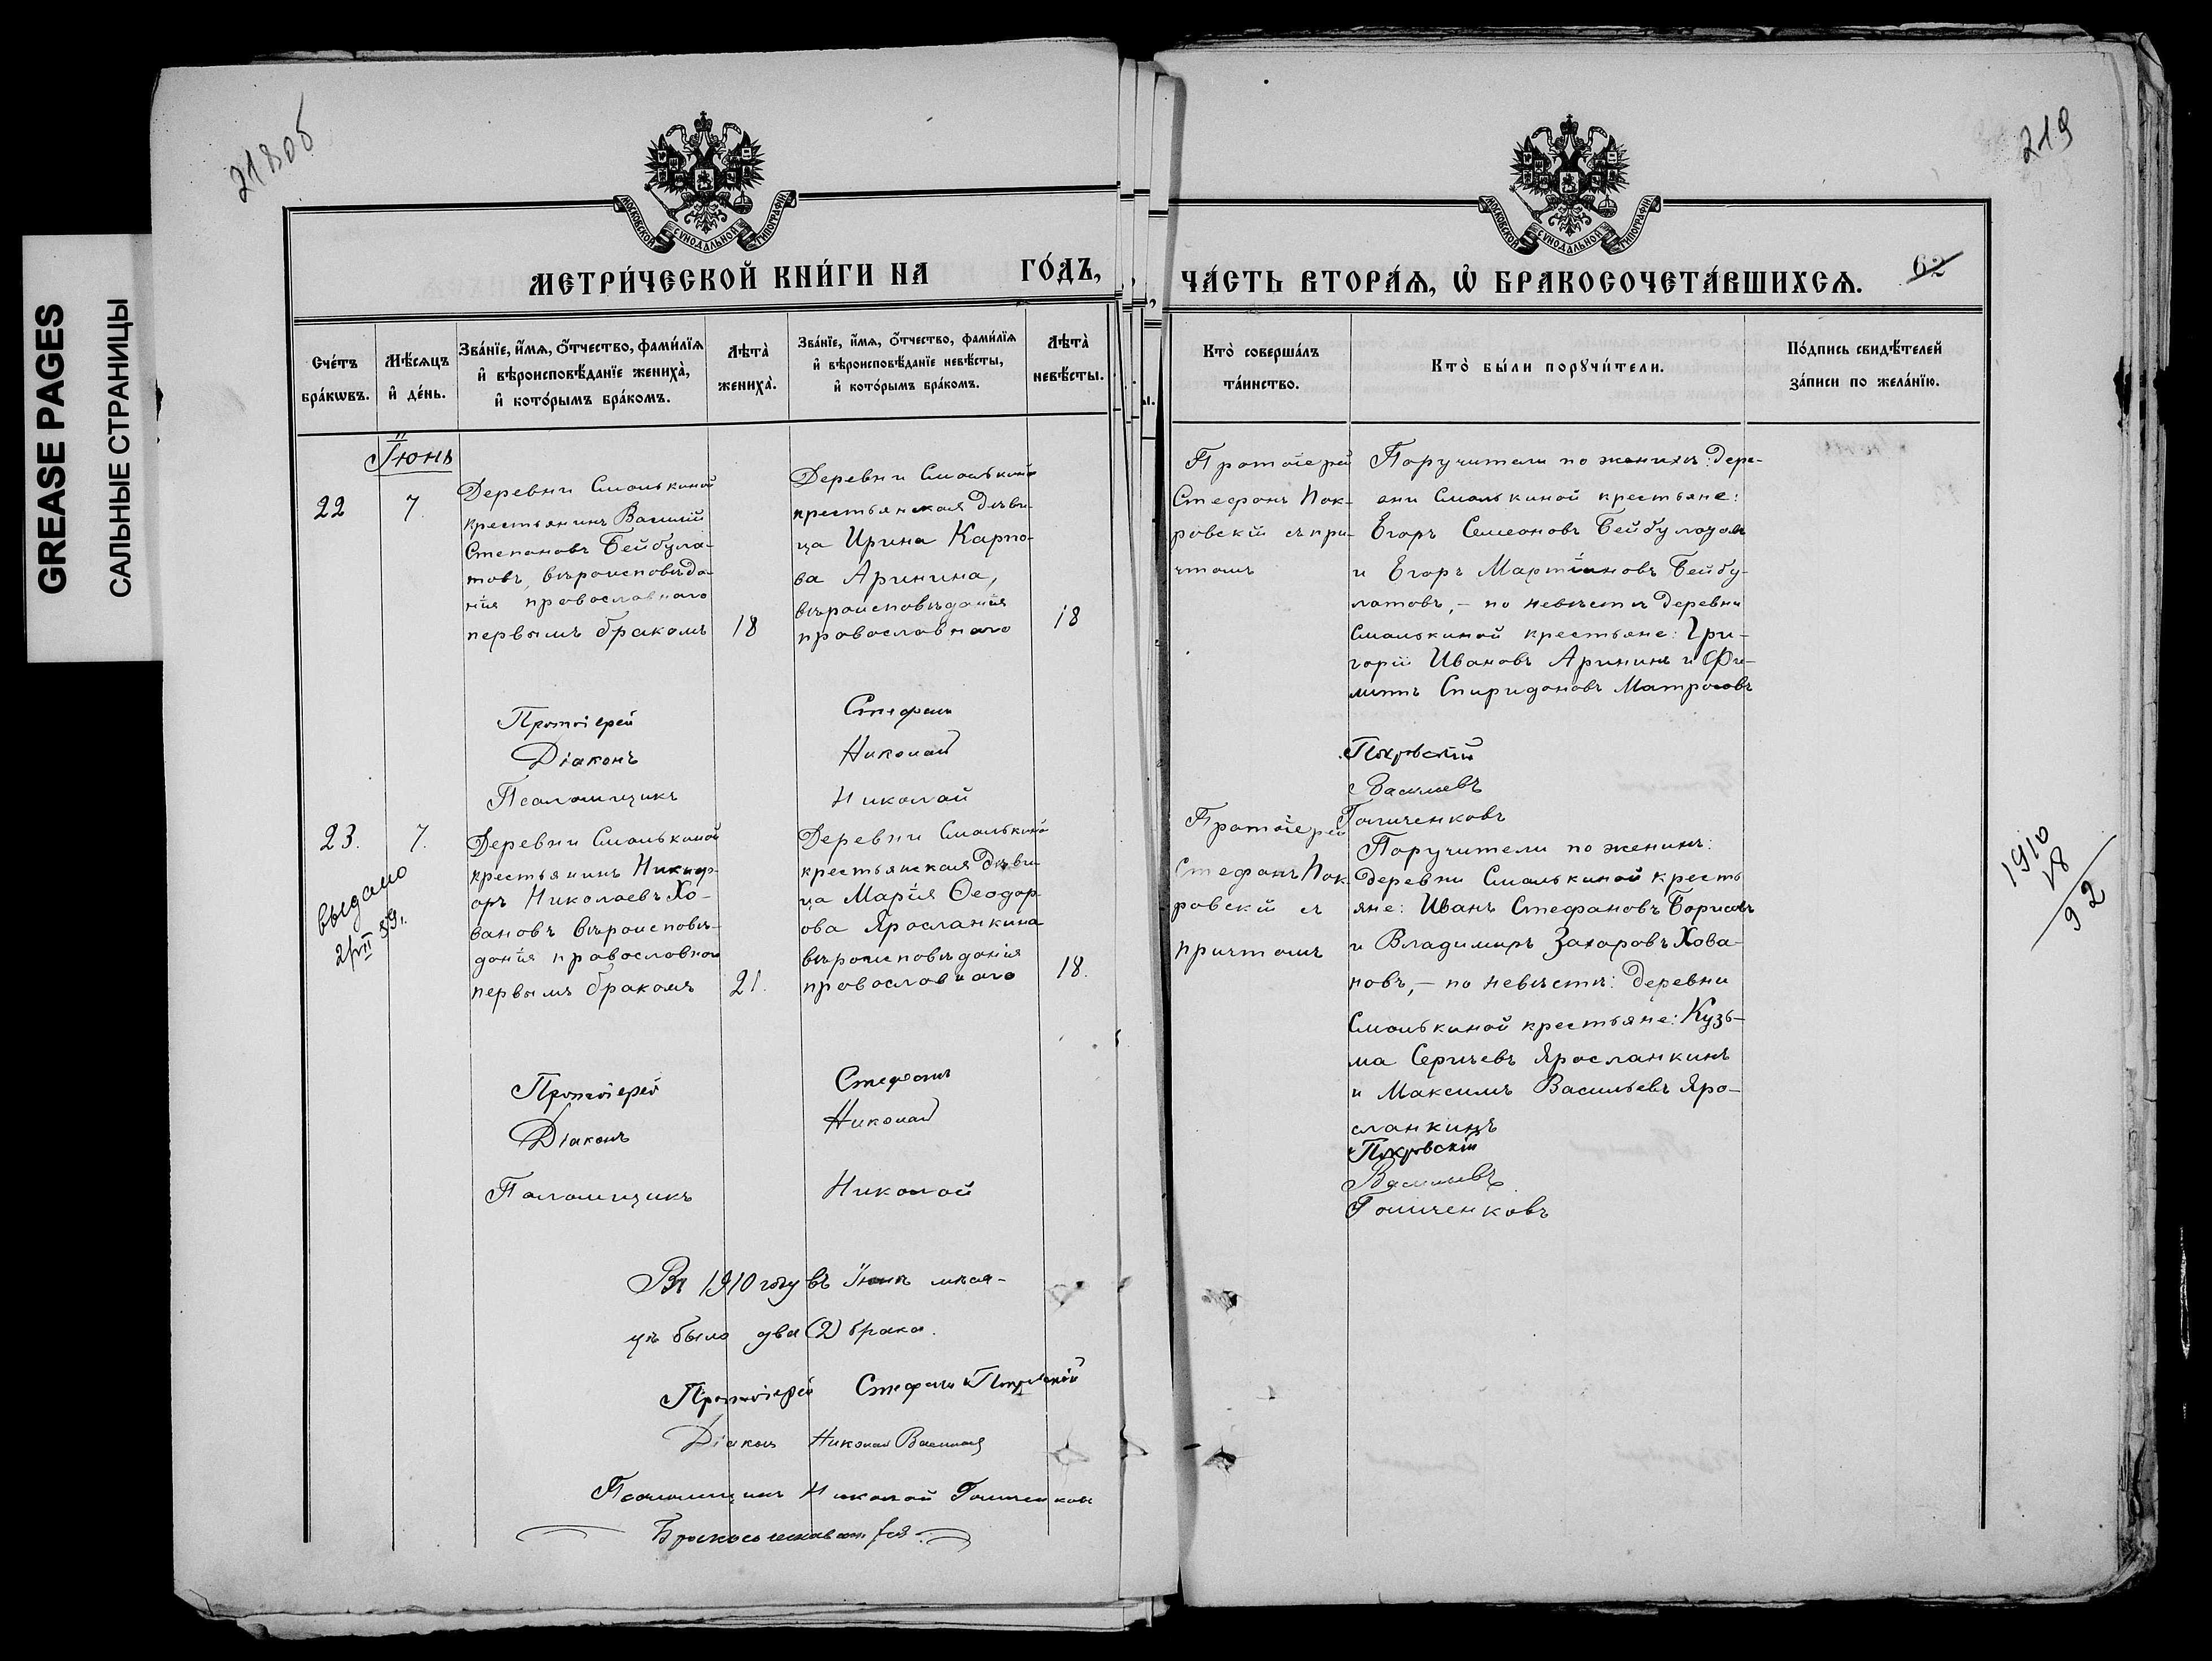 GREASE PAGES
САЛЬНЫЕ СТРАНИЦЫ
218об
МОСКОВСКОЙ СѴНОДАЛЬНОЙ ТИПОГРАФІИ
МЕТРИ́ЧЕСКОЙ КНИ́ГИ НА ГО́ДЪ,
Сче́тъ бра́кωвъ.
Мѣ́сяцъ и҆ де́нь.
Зва́нїе, и҆́мѧ, ѻ҆́тчество, фами́лїѧ
и҆ вѣроисповѣ́данїе жениха̀,
и҆ кото́рымъ бра́комъ.
Лѣта̀ жениха̀.
Зва́нїе, и҆́мѧ, ѻ҆́тчество, фами́лїѧ
и҆ вѣроисповѣ́данїе невѣ́сты,
и҆ кото́рымъ бра́комъ.
Лѣта̀ невѣ́сты.
Іюнь
22
7
Деревни Смолькиной
крестьянинъ Василій
Степановъ Бейбула-
товъ, вѣроисповѣда-
нія православнаго
первымъ бракомъ
18
Деревни Смолькиной
крестьянская дѣви-
ца Ирина Карпо-
ва Аринина,
вѣроисповѣданія
православнаго
18
Протоіерей Стефанъ
Діаконъ Николай
Псаломщикъ Николай
23.
7.
выдано
Деревни Смолькиной
крестьянинъ Никиф-
оръ Николаевъ Хо-
вановъ вѣроисповѣ-
данія православнаго
первымъ бракомъ
21.
Деревни Смолькиной
крестьянская дѣви-
ца Марія Ѳеодор-
ова Ярославкина
вѣроисповѣданія
православнаго
18.
Протоіерей Стефанъ
Діаконъ Николай
Псаломщикъ Николай
Въ 1910 году въ Іюнѣ мѣся-
цѣ было два (2) брака.
Протоіерей Стефанъ Покровскій
Діаконъ Николай Васильевъ
Псаломщикъ Николай
219
МОСКОВСКОЙ СѴНОДАЛЬНОЙ ТИПОГРАФІИ
ЧА́СТЬ ВТОРА́Ѧ, Ѽ БРАКОСОЧЕТА́ВШИХСѦ.
62
Кто̀ соверша́лъ
та́инство.
Кто̀ бы́ли порꙋчи́тели.
По́дпись свидѣ́телей
за́писи по жела́нїю.
Протоіерей
Стефанъ Пок-
ровскій съ при-
чтомъ
Поручители по женихѣ: дере-
вни Смолькиной крестьяне:
Егоръ Семеоновъ Бейбулатовъ
и Егоръ Мартиновъ Бейбу-
латовъ, – по невѣстѣ деревни
Смолькиной крестьяне: Гри-
горій Ивановъ Арининъ и Фи-
липпъ Спиридоновъ Матросовъ
Покровскій
Васильевъ
Протоіерей
Стефанъ Пок-
ровскій съ
причтомъ
Поручители по женихѣ:
деревни Смолькиной кресть
яне: Иванъ Стефановъ Борисовъ
и Владимиръ Захаровъ Хова-
новъ, – по невѣстѣ: деревни
Смолькиной крестьяне: Кузь-
ма Сергѣевъ Ярославкинъ
и Максимъ Васильевъ Яро-
славкинъ
Покровскій
Васильевъ
1910
18
92